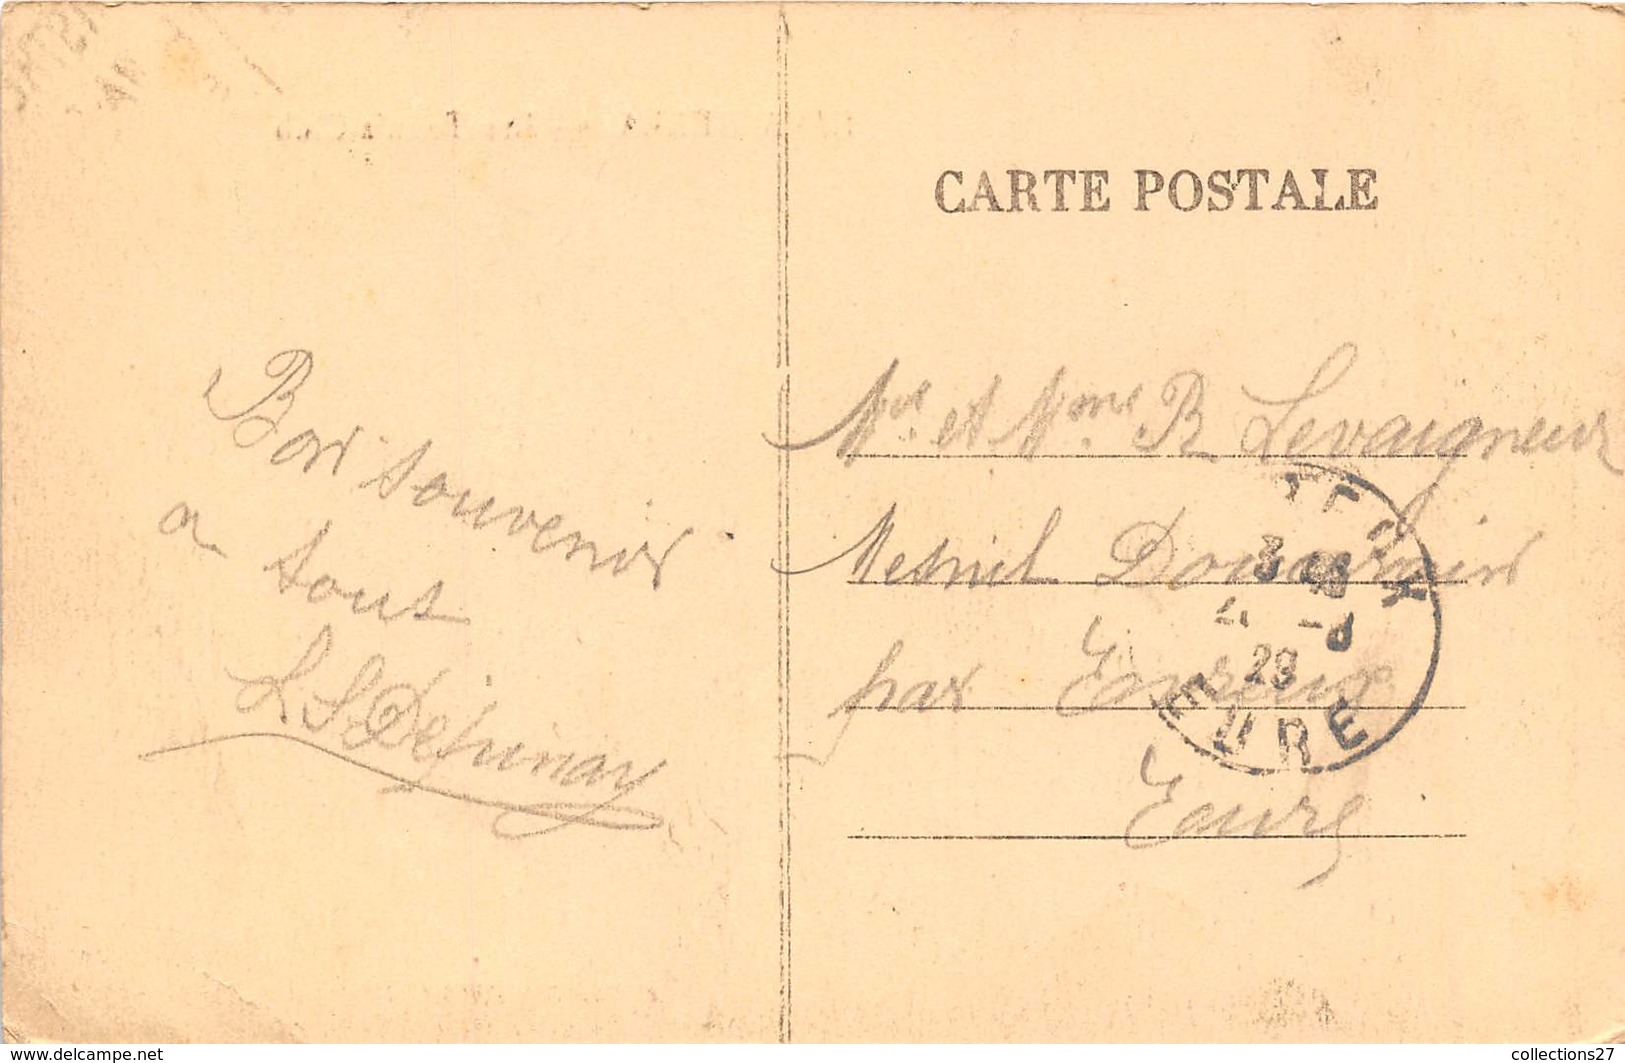 CARTE POSTALE
Bon souvenir
a tous
L S Dépinay
Mr et Mme R Levaigneur
Mesnil Doucerain
par Evreux
Eure
3
-8
29
EURE
www.delcampe.net
collections27